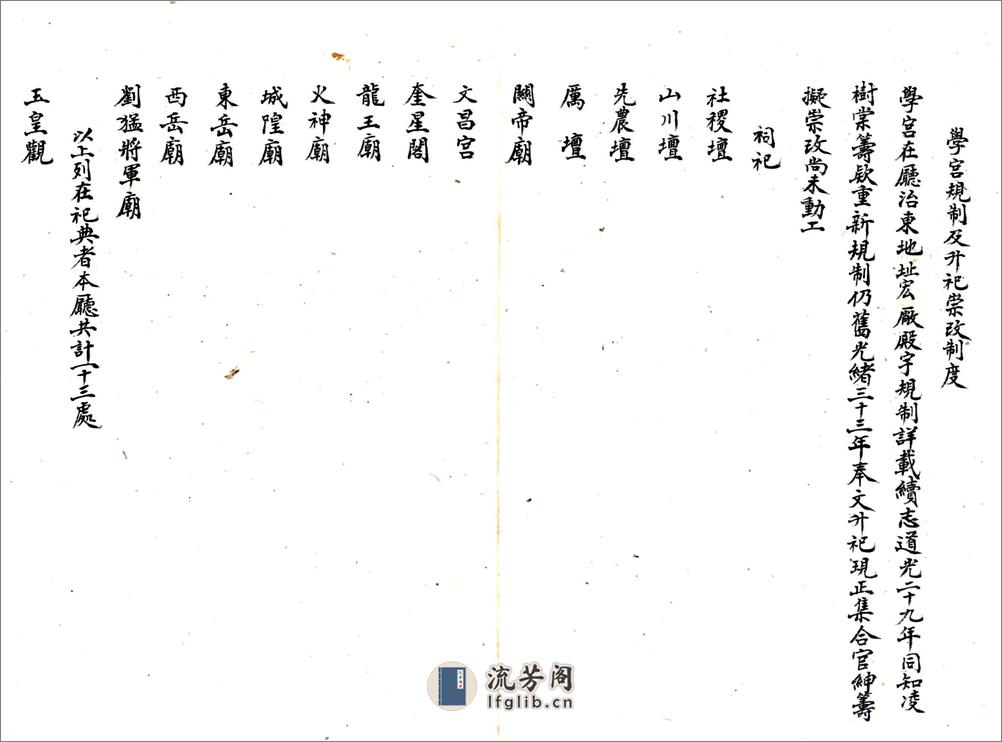 學宮規制及升祀崇改制度
學宮在廳治東地址宏廠殿宇規制詳載續志道光二十九年同知凌
樹棠籌欵重新規制仍舊光緒三十三年奉文升祀現正集合官紳籌
擬崇改尚未動工
祠祀
社稷壇
山川壇
先農壇
厲壇
關帝廟
文昌宮
奎星閣
龍王廟
火神廟
城隍廟
東岳廟
西岳廟
劉猛將軍廟
以上列在祀典者本廳共計一十三處
玉皇觀
流芳阁
lfglib.cn